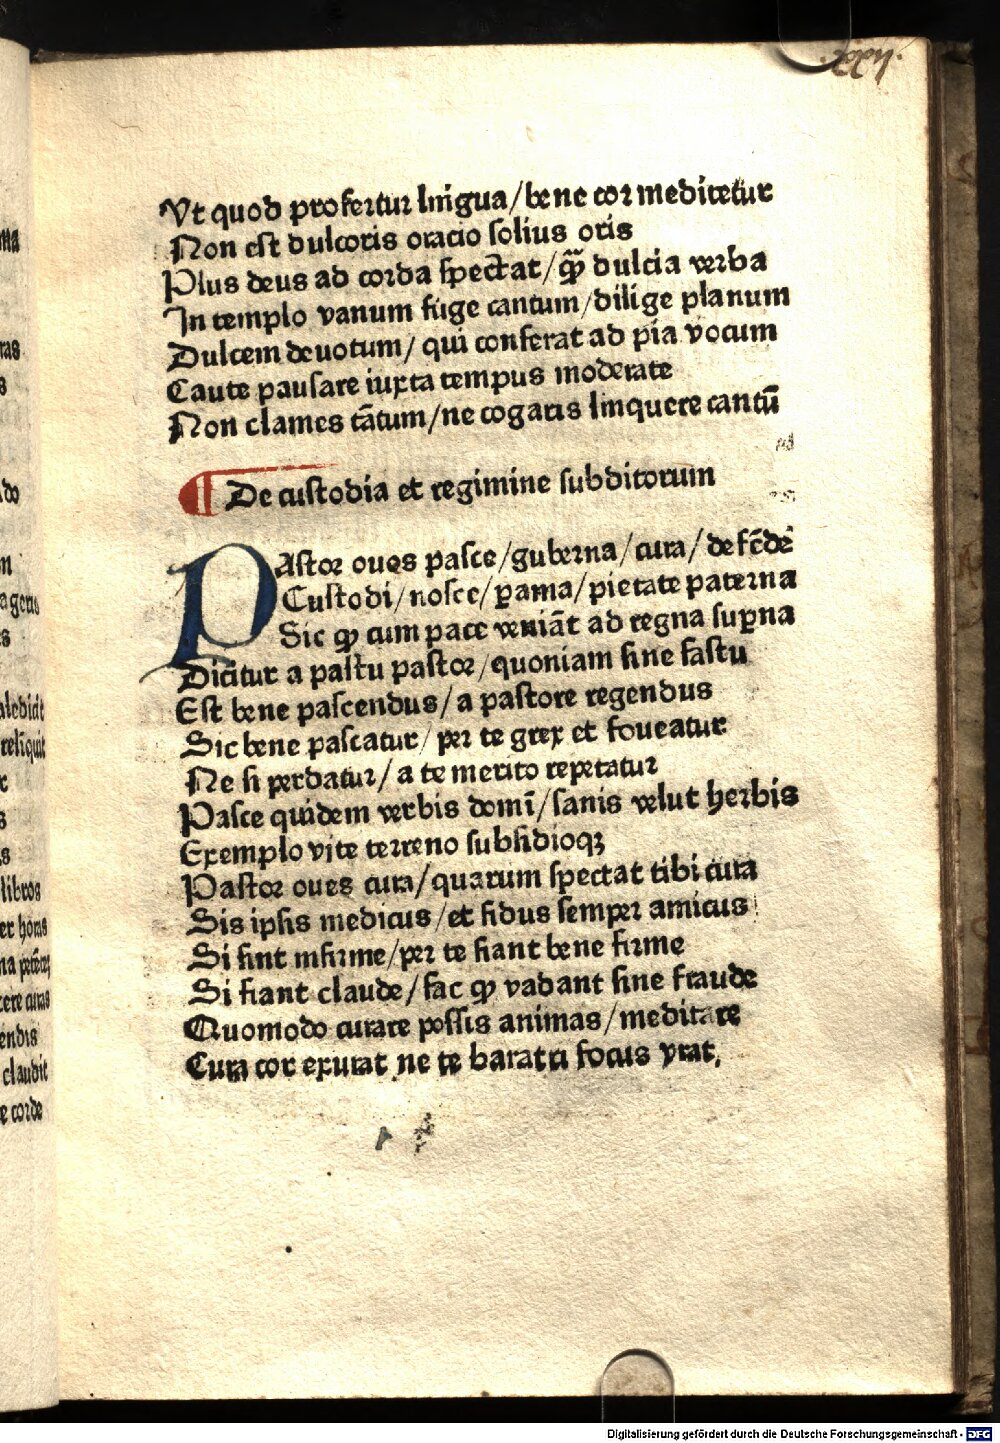 .xxv.
Vt quod profertur lingua/bene cor meditetur
Non est dulcoris oracio solius oris
Plus deus ad corda spectat/ꝙ̃ dulcia verba
In templo vanum fuge cantum/dilige planum
Dulcem deuotum/ qui conferat ad pia vocum
Caute pausare iuxta tempus moderate
Non clames tātum/ne cogaris linquere cantū
¶ De custodia et regimine subditorum
PAstor oues pasce/guberna/cura/defēde
Custodi/nosce/ꝑama/pietate paterna
Sic ꝙ cum pace veniāt ad regna suꝑna
Dicitur a pastu pastor/quoniam sine fastu
Est bene pascendus/a pastore regendus
Sic bene pascatur/per te grex et foueatur
Ne si perdatur/a te merito repetatur
Pasce quidem verbis domī/sanis velut herbis
Exemplo vite terreno subsidioqꝫ
Pastor oues cura/quarum spectat tibi cura
Sis ipsis medicus/et fidus semper amicus
Si sint infirme/per te fiant bene firme
Si fiant claude/fac ꝙ vadant sine fraude
Quomodo curare possis animas/meditare
Cura cor exurat ne te baratri focus vrat.
Digitalisierung gefördert durch die Deutsche Forschungsgemeinschaft - DFG